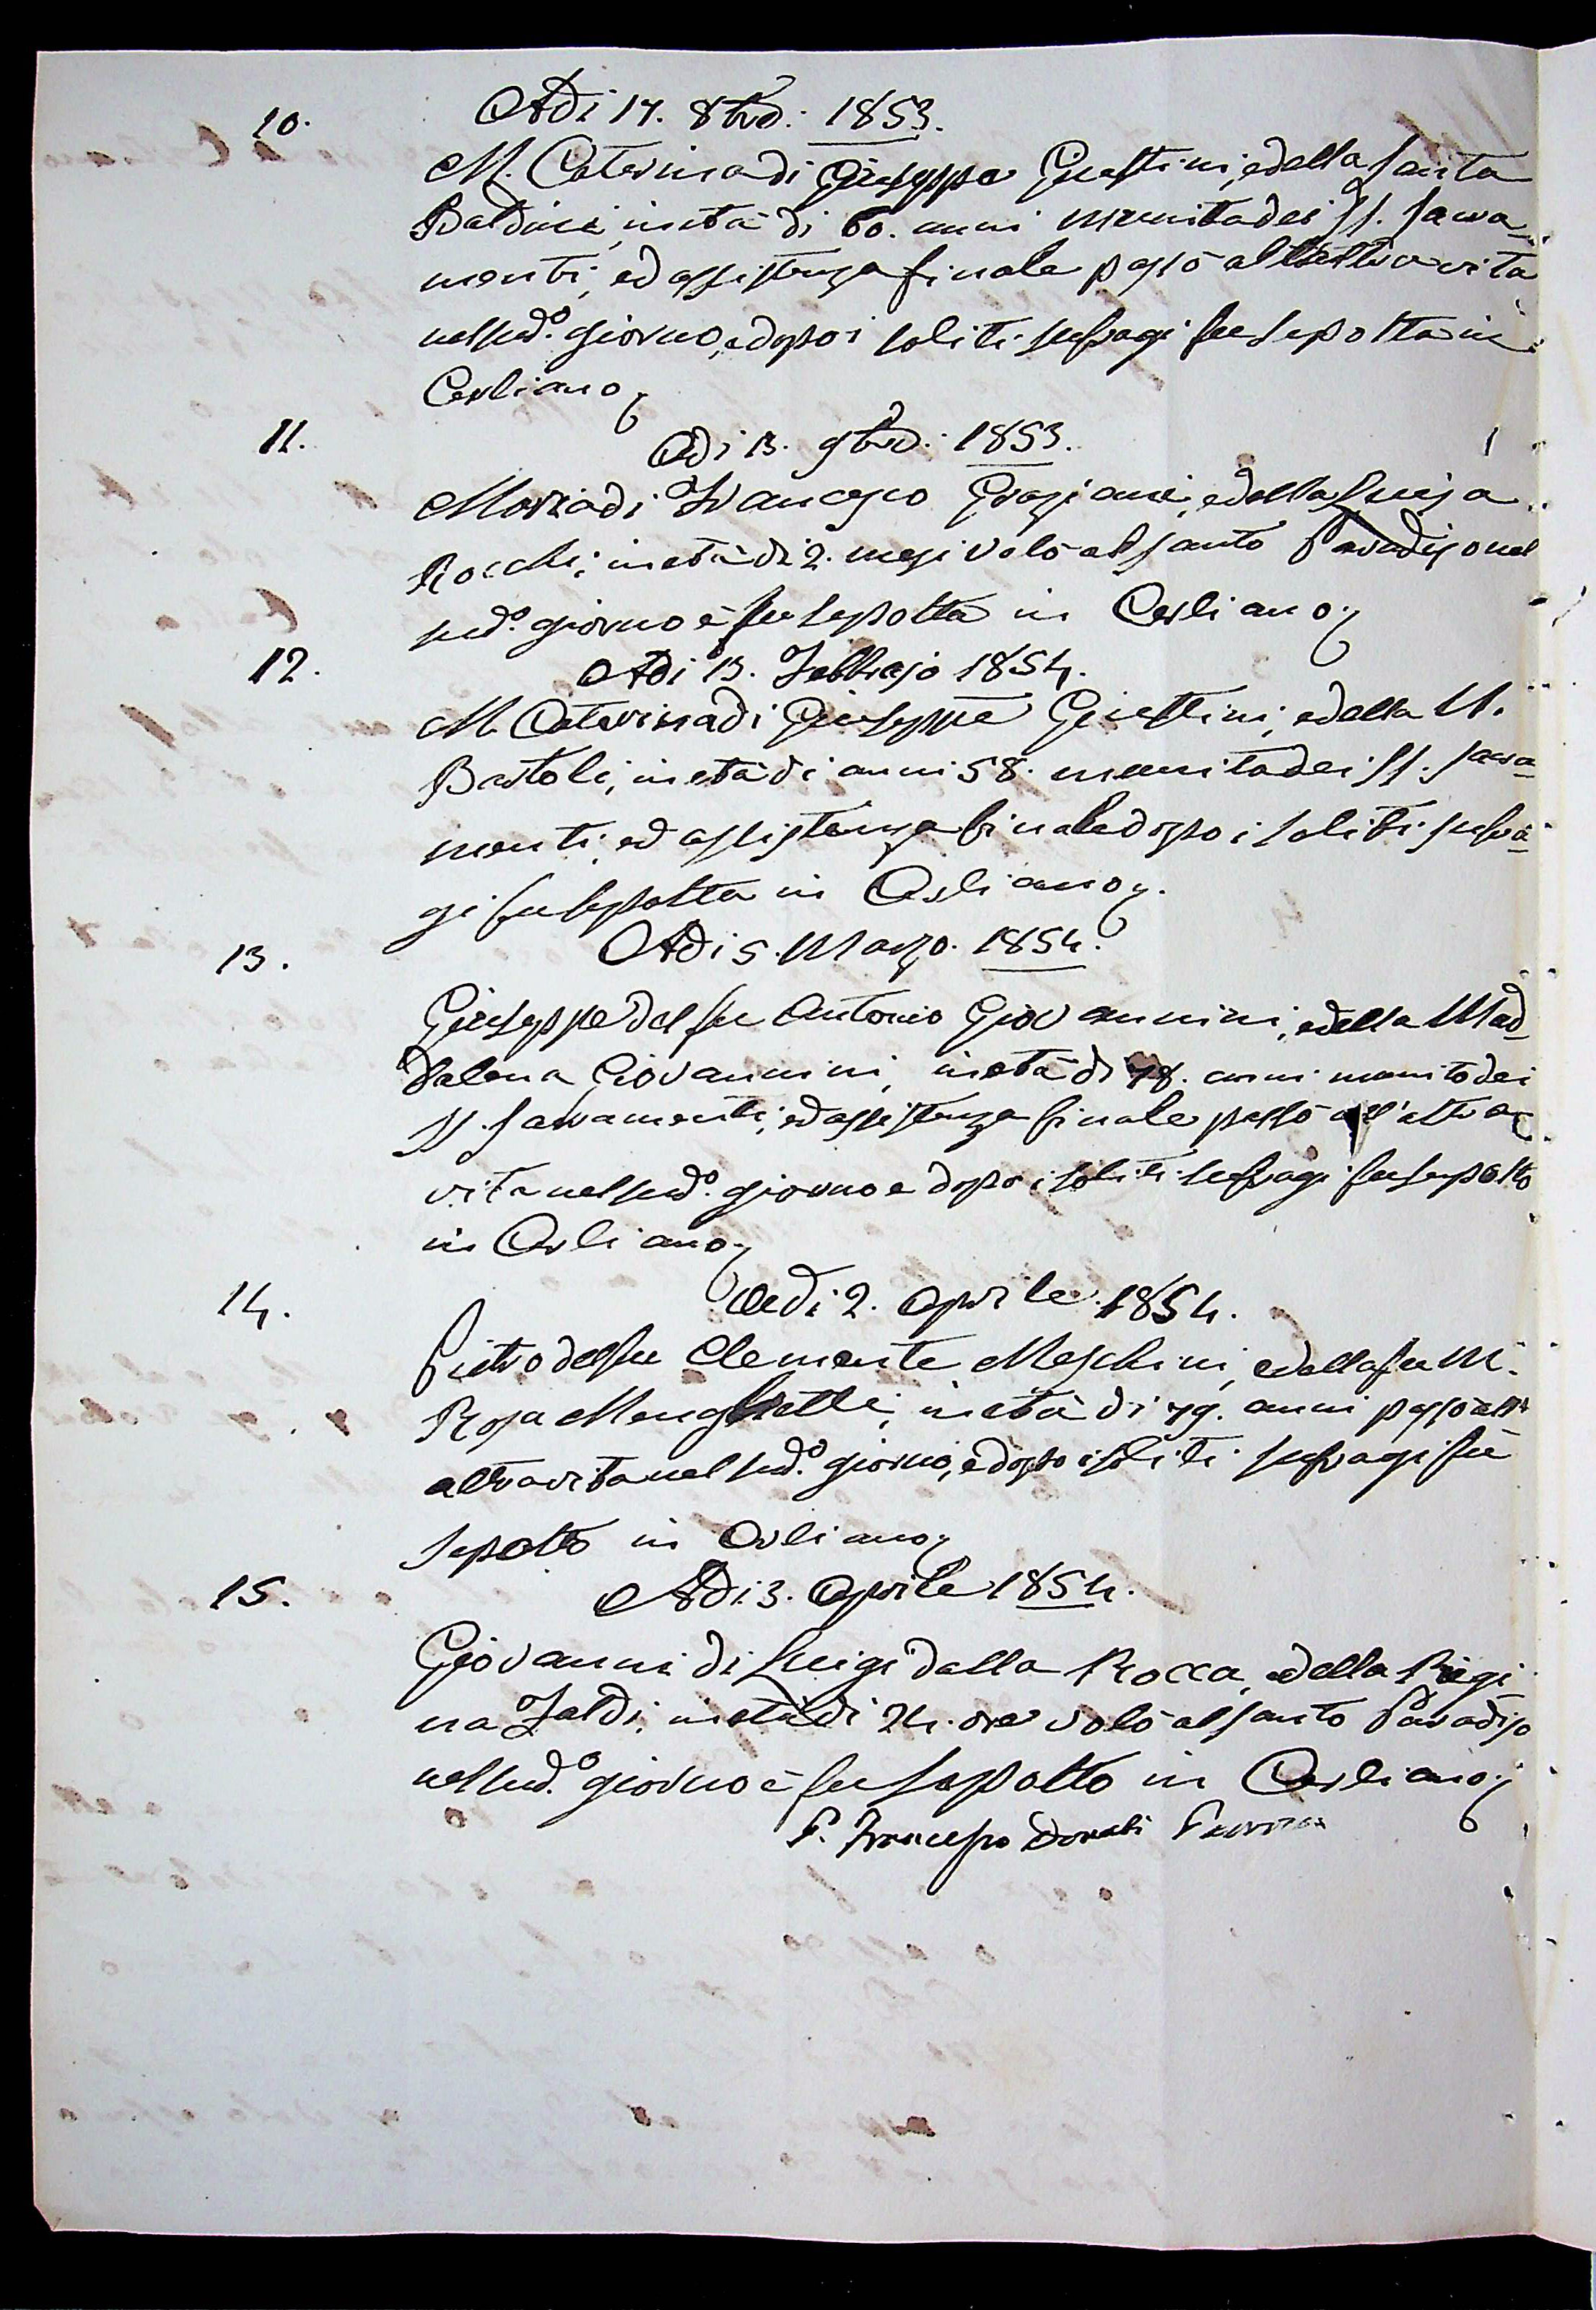 10. Adì 17. 8bre: 1853.
M. Caterina di Giuseppe Giustini, e della Santa
Baldini, in età di 60. anni munita dei SS. Sacra=
menti, ed assistenza finale passò all'altra vita
nel sudo. giorno, e dopo i soliti sufragi fu sepolta in
Corliano
11. Adì 13. 9bre: 1853.
Maria di Francesco Graziani, e della Luisa
Rocchi, in età di 2. mesi volò al santo Paradiso nel
sudo. giorno è fu sepolta in Corliano
12. Adì 13. Febbrajo 1854.
M. Caterina di Giuseppe Giustini, e della M.
Bartoli, in età di anni 58. munita dei SS. Sacra=
menti, ed assistenza finale dopo i soliti sufra=
gi fu sepolta in Corliano.
13. Adì 5. Marzo. 1854.
Giuseppe del fu Antonio Giovannini, e della Mad=
dalena Giovannini, in età di 78. anni munito dei
SS. Sacramenti, ed assistenza finale passò all'altra
vita nel sudo. giorno e dopo i soliti sufragi fu sepolto
in Corliano
14. Adì 2. Aprile. 1854.
Pietro del fu Clemente Meschini, e della fu M.
Rosa Menghetti, in età di 79. anni passò all'
altra vita nel sudo. giorno, e dopo i soliti sufragi fu
sepolto in Corliano
15. Adì 3. Aprile 1854.
Giovanni di Luigi dalla Rocca, e della Regi
na Faldi, in età di 24. ore volò al santo Paradiso
nel sudo. giorno è fu sepolto in Corliano
P. Francesco Donati